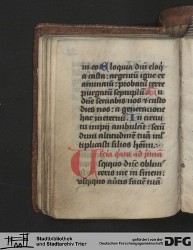 in eo Eloquia dn̄i eloq̄
a casta: argentū igne ex
aminatū: probatū terre
purgatū septuplū Tu
dn̄e seruabis nos et custo
dies nos: a generatione
hac in eternū In circui
tu impij ambulāt: secū
dum altitudinē tuā mul
tiplicasti filios hoīm.
Vsquequo dn̄e obliuis
ceris me in finem:
usquequo auertis faciē tuā
Stadtbibliothek
und Stadtarchiv Trier
gefördert von der
DFG
Deutschen Forschungsgemeinschaft